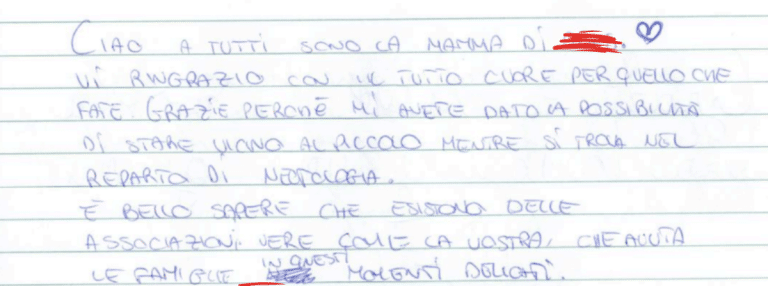 CIAO A TUTTI SONO LA MAMMA DI
VI RINGRAZIO CON IL TUTTO CUORE PER QUELLO CHE
FATE. GRAZIE PERCHÈ MI AVETE DATO LA POSSIBILITÀ
DI STARE VICINO AL PICCOLO MENTRE SI TROVA NEL
REPARTO DI NEOTOLOGIA.
È BELLO SAPERE CHE ESISTONO DELLE
ASSOCIAZIONI VERE COME LA VOSTRA, CHE AIUTA
LE FAMIGLIE IN QUESTI MOMENTI DELICATI.